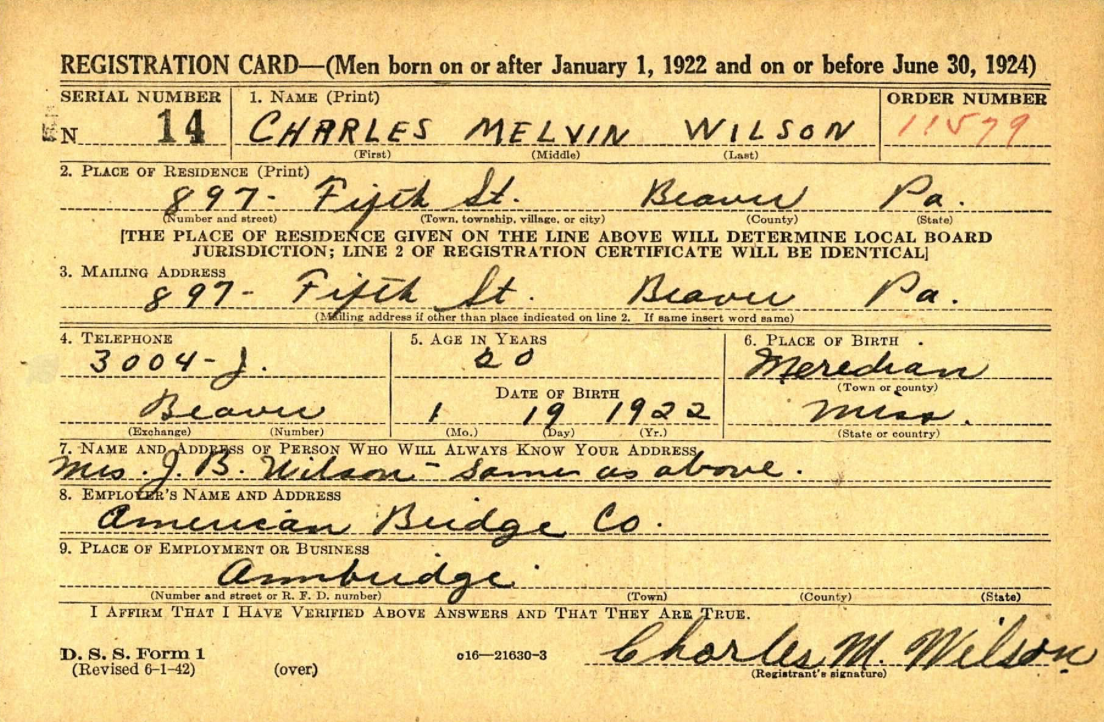 REGISTRATION CARD—(Men born on or after January 1, 1922 and on or before June 30, 1924)
SERIAL NUMBER 1. NAME (Print) ORDER NUMBER
N 14 CHARLES MELVIN WILSON 11579
(First) (Middle) (Last)
2. PLACE OF RESIDENCE (Print)
897- Fifth St. Beaver Pa.
(Number and street) (Town, township, village, or city) (County) (State)
[THE PLACE OF RESIDENCE GIVEN ON THE LINE ABOVE WILL DETERMINE LOCAL BOARD
JURISDICTION; LINE 2 OF REGISTRATION CERTIFICATE WILL BE IDENTICAL]
3. MAILING ADDRESS
897- Fifth St. Beaver Pa.
(Mailing address if other than place indicated on line 2. If same insert word same)
4. TELEPHONE 5. AGE IN YEARS 6. PLACE OF BIRTH
3004-J. 20 Meredian
DATE OF BIRTH (Town or county)
Beaver 1 19 1922 Miss.
(Exchange) (Number) (Mo.) (Day) (Yr.) (State or country)
7. NAME AND ADDRESS OF PERSON WHO WILL ALWAYS KNOW YOUR ADDRESS
Mrs. J. B. Wilson - same as above.
8. EMPLOYER'S NAME AND ADDRESS
American Bridge Co.
9. PLACE OF EMPLOYMENT OR BUSINESS
Ambridge
(Number and street or R. F. D. number) (Town) (County) (State)
I AFFIRM THAT I HAVE VERIFIED ABOVE ANSWERS AND THAT THEY ARE TRUE.
Charles M. Wilson
D. S. S. Form 1 c16—21630-3
(Revised 6-1-42) (over) (Registrant's signature)